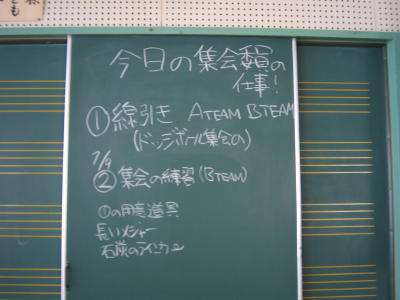 今日の集会委員の
仕事!
①線引き ATEAM BTEAM
(ドッジボール集会の)
②集会の練習(BTEAM)
①の用意道具
長いメジャー
石灰の